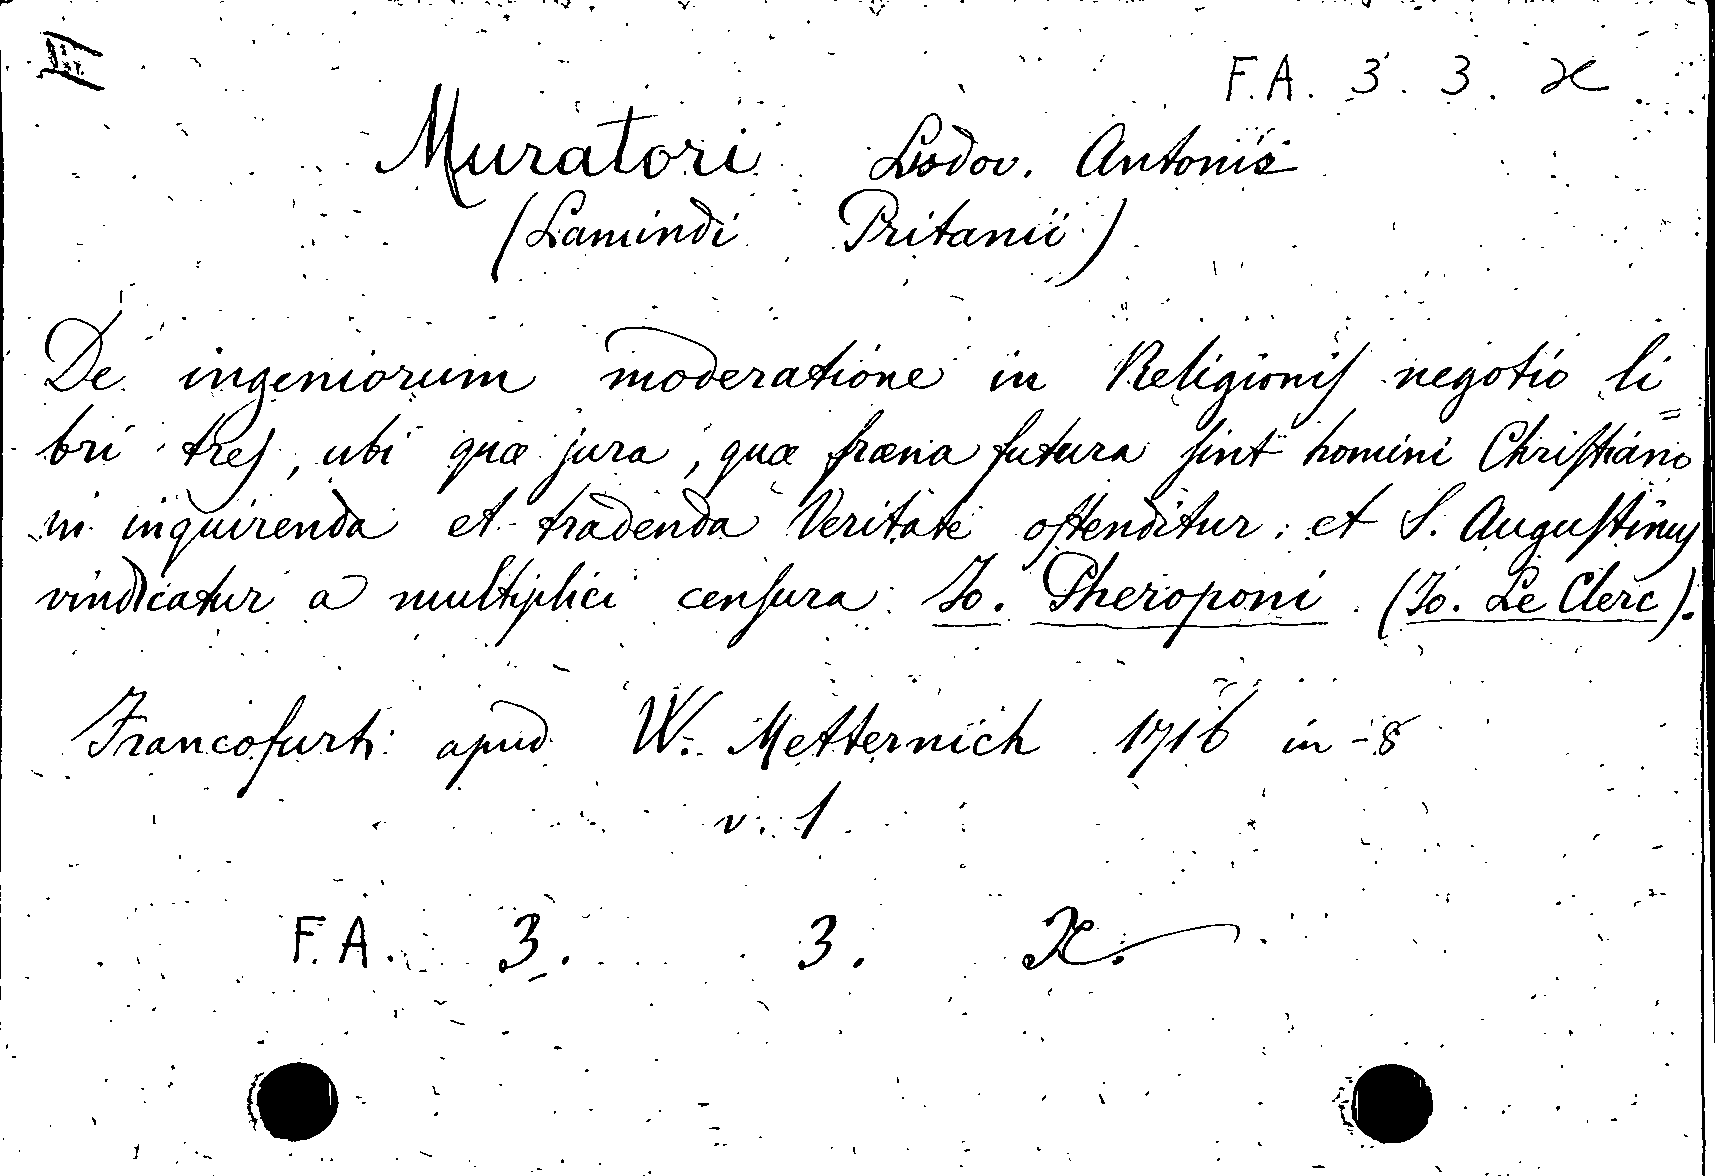 III
F.A. 3. 3. x
Muratori Lodov. Antonii
(Lamindi Pritanii)
De ingeniorum moderatione in Religioniſ negotio li=
bri treſ, ubi quæ jura, quæ fræna futura ſint homini Chriſtiano
in inquirenda et tradenda Veritate oſtenditur: et S. Auguſtinus
vindicatur a multiplici cenſura Jo. Pheroponi (Jo. Le Clerc).
Francofurti apud W. Metternich 1716 in-8
v. 1
F.A. 3. 3. X.